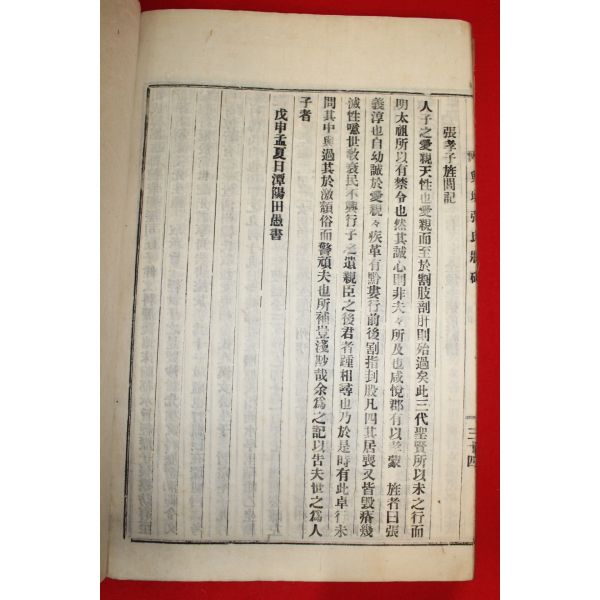 張孝子旌閭記
人子之愛親天性也愛親而至於割肢剖肝則殆過矣此三代聖賢所以未之行而
明太祖所以有禁令也然其誠心則非夫々所及也咸悅郡有以孝蒙 旌者曰張
義淳也自幼誠於愛親々疾革有黔婁行前後割指刲股凡四其居喪又皆毀瘠幾
滅性噫世敎衰民不興行子之遺親臣之後君者踵相尋也乃於是時有此卓行未
問其中與過其於激頹俗而警頑夫也所補豈淺尠哉余爲之記以告夫世之爲人
子者
戊申孟夏日潭陽田愚書
張氏
三十四